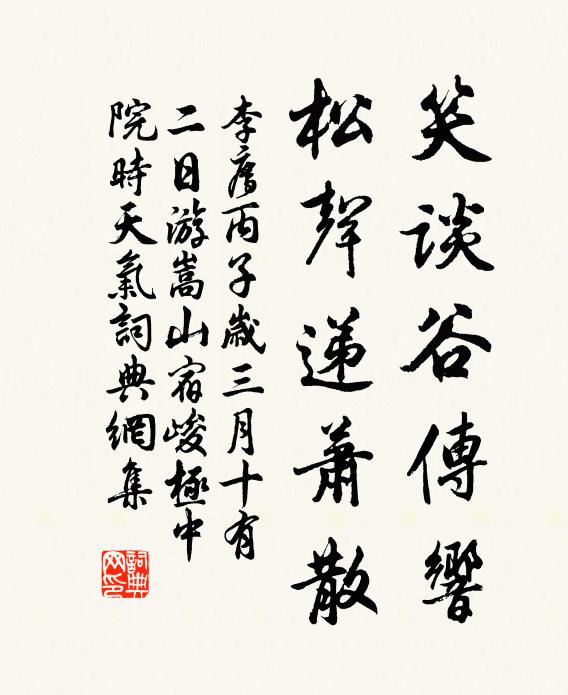 笑談谷傳響
松聲遞蕭散
李廌丙子歲三月十有
二日游嵩山宿峻極中
院時天氣詞典網集
詞典網印